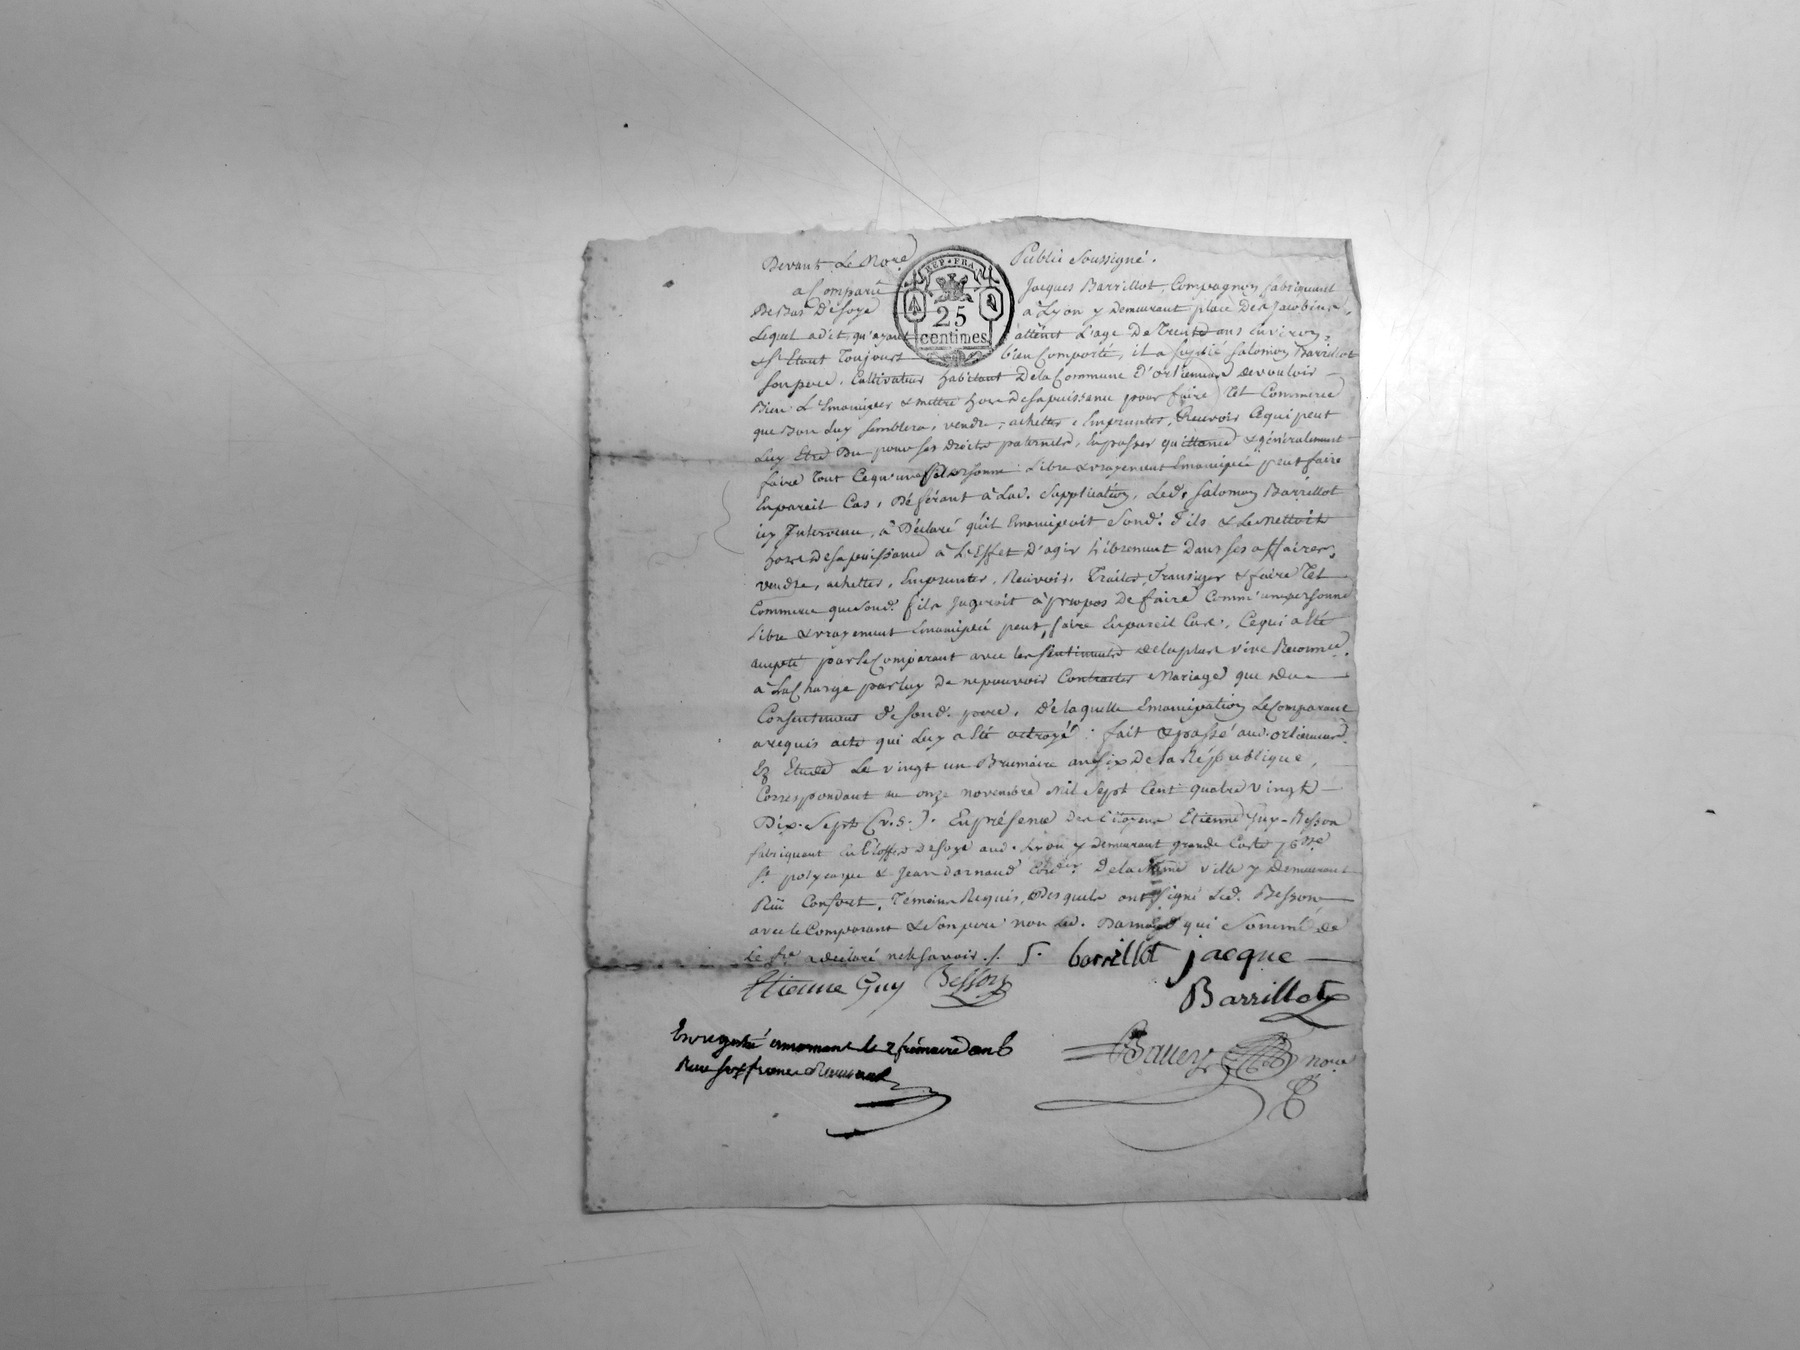 Devant Le Nore Public soussigné.
REP. FRA.
25
centimes
a Comparu Jacques Barrillot, Compagnon fabriquant
De Bas D'esoye à Lyon y demeurant place Des Jacobins,
Lequel a dit, qu'ayant atteint L'age De trente ans Environ,
& S'Etant Toujours bien Comporté, il a supplié Salomon Barrillot
son pere, Cultivateur habitant De la Commune D'orliemas De vouloir
Bien L'Emanciper & mettre hors De sa puissance pour faire Tel Commerce
que Bon Luy semblera, vendre, achetter, Emprunter, Recevoir Ce qui peut
Luy Etre Du pour ses Droits paternels, En passer quittance & généralement
faire Tout Ce qu'une personne Libre & vrayement Emancipée peut faire
En pareil Cas, Déférant à Lad. Supplication, Led. Salomon Barrillot
icy Intervenu, à Déclaré qu'il Emancipoit Sond. Fils & Le mettoit
hors De sa puissance à L'Effet D'agir Librement Dans ses affaires,
vendre, achetter, Emprunter, Recevoir, Traiter, Transiger & faire Tel
Commerce que Sond. fils Jugeroit à propos De faire Comm'une personne
Libre & vrayement Emancipée peut faire En pareil Cas, Ce qui a été
accepté par Le Comparant avec Les sentiments De la plus vive Reconnce.
à La Charge par Luy De ne pouvoir Contracter Mariage que Du
Consentement De Sond. pere, De laquelle Emancipation Le Comparant
a requis acte qui Luy a été octroyé: fait & passé aud. orliemas
En Etude Le vingt un Brumaire an six De la République,
Correspondant au onze novembre Mil Sept Cent quatre vingt
Dix-Sept (v.s.). En présence Des Citoyens Etienne Guy-Besson
fabriquant En Etoffes De Soye aud. Lyon y demeurant grande Coste
St. polycarpe & Jean Darnaud De la Même ville y Demeurant
Rüe Confort, Témoins Requis, Desquels ont signé Led. Besson
avec Le Comparant & Son pere non Led. Darnaud qui Sommé De
Le fre a déclaré ne le Savoir. /. S. barrillot jacque
Etienne Guy Besson Barrillot
Enregistré a mornant le 2 frimaire an 6
Reçu
nore